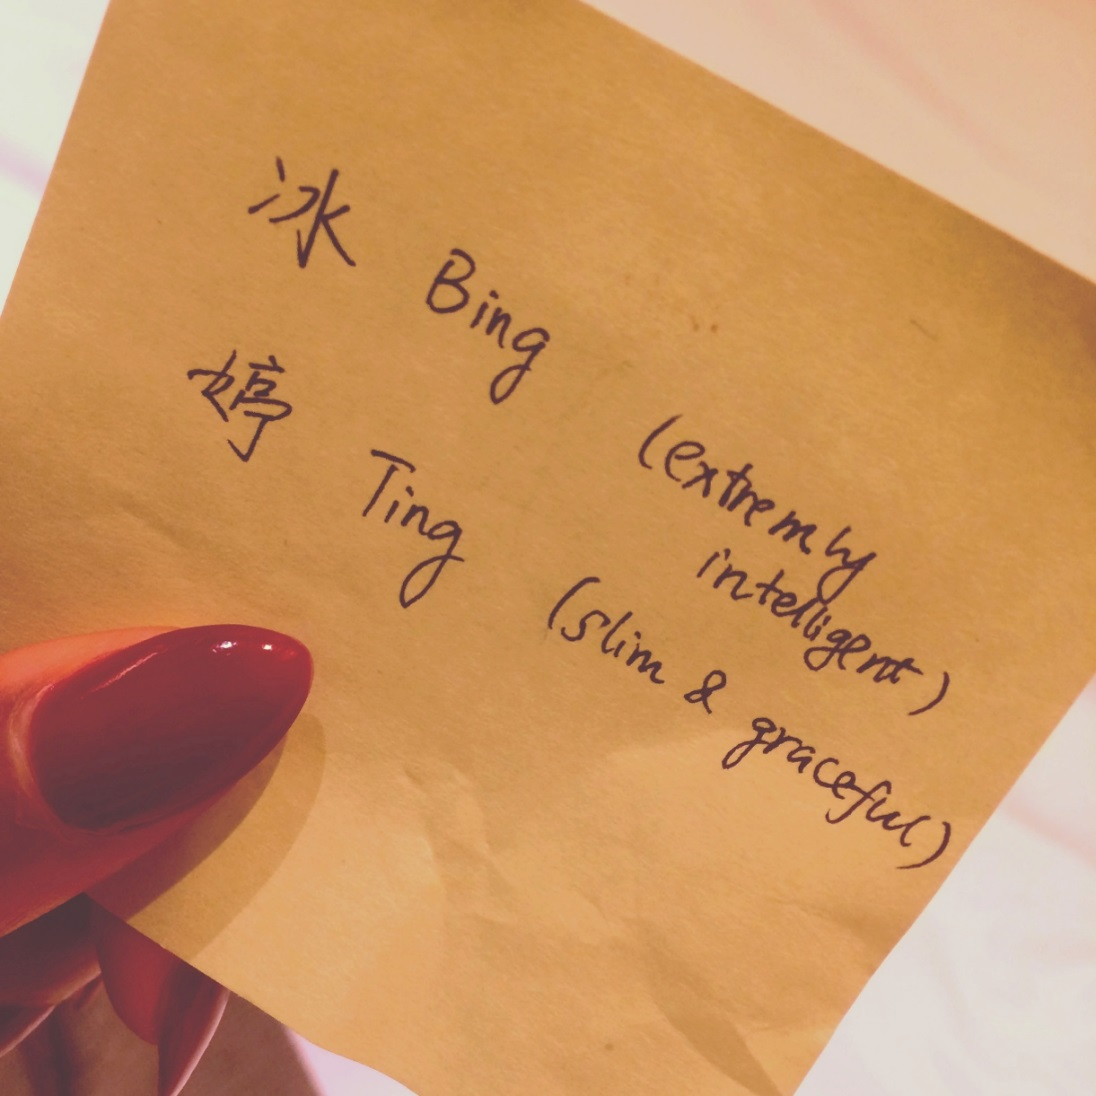 冰 Bing (extremly
intelligent)
婷 Ting (slim & graceful)